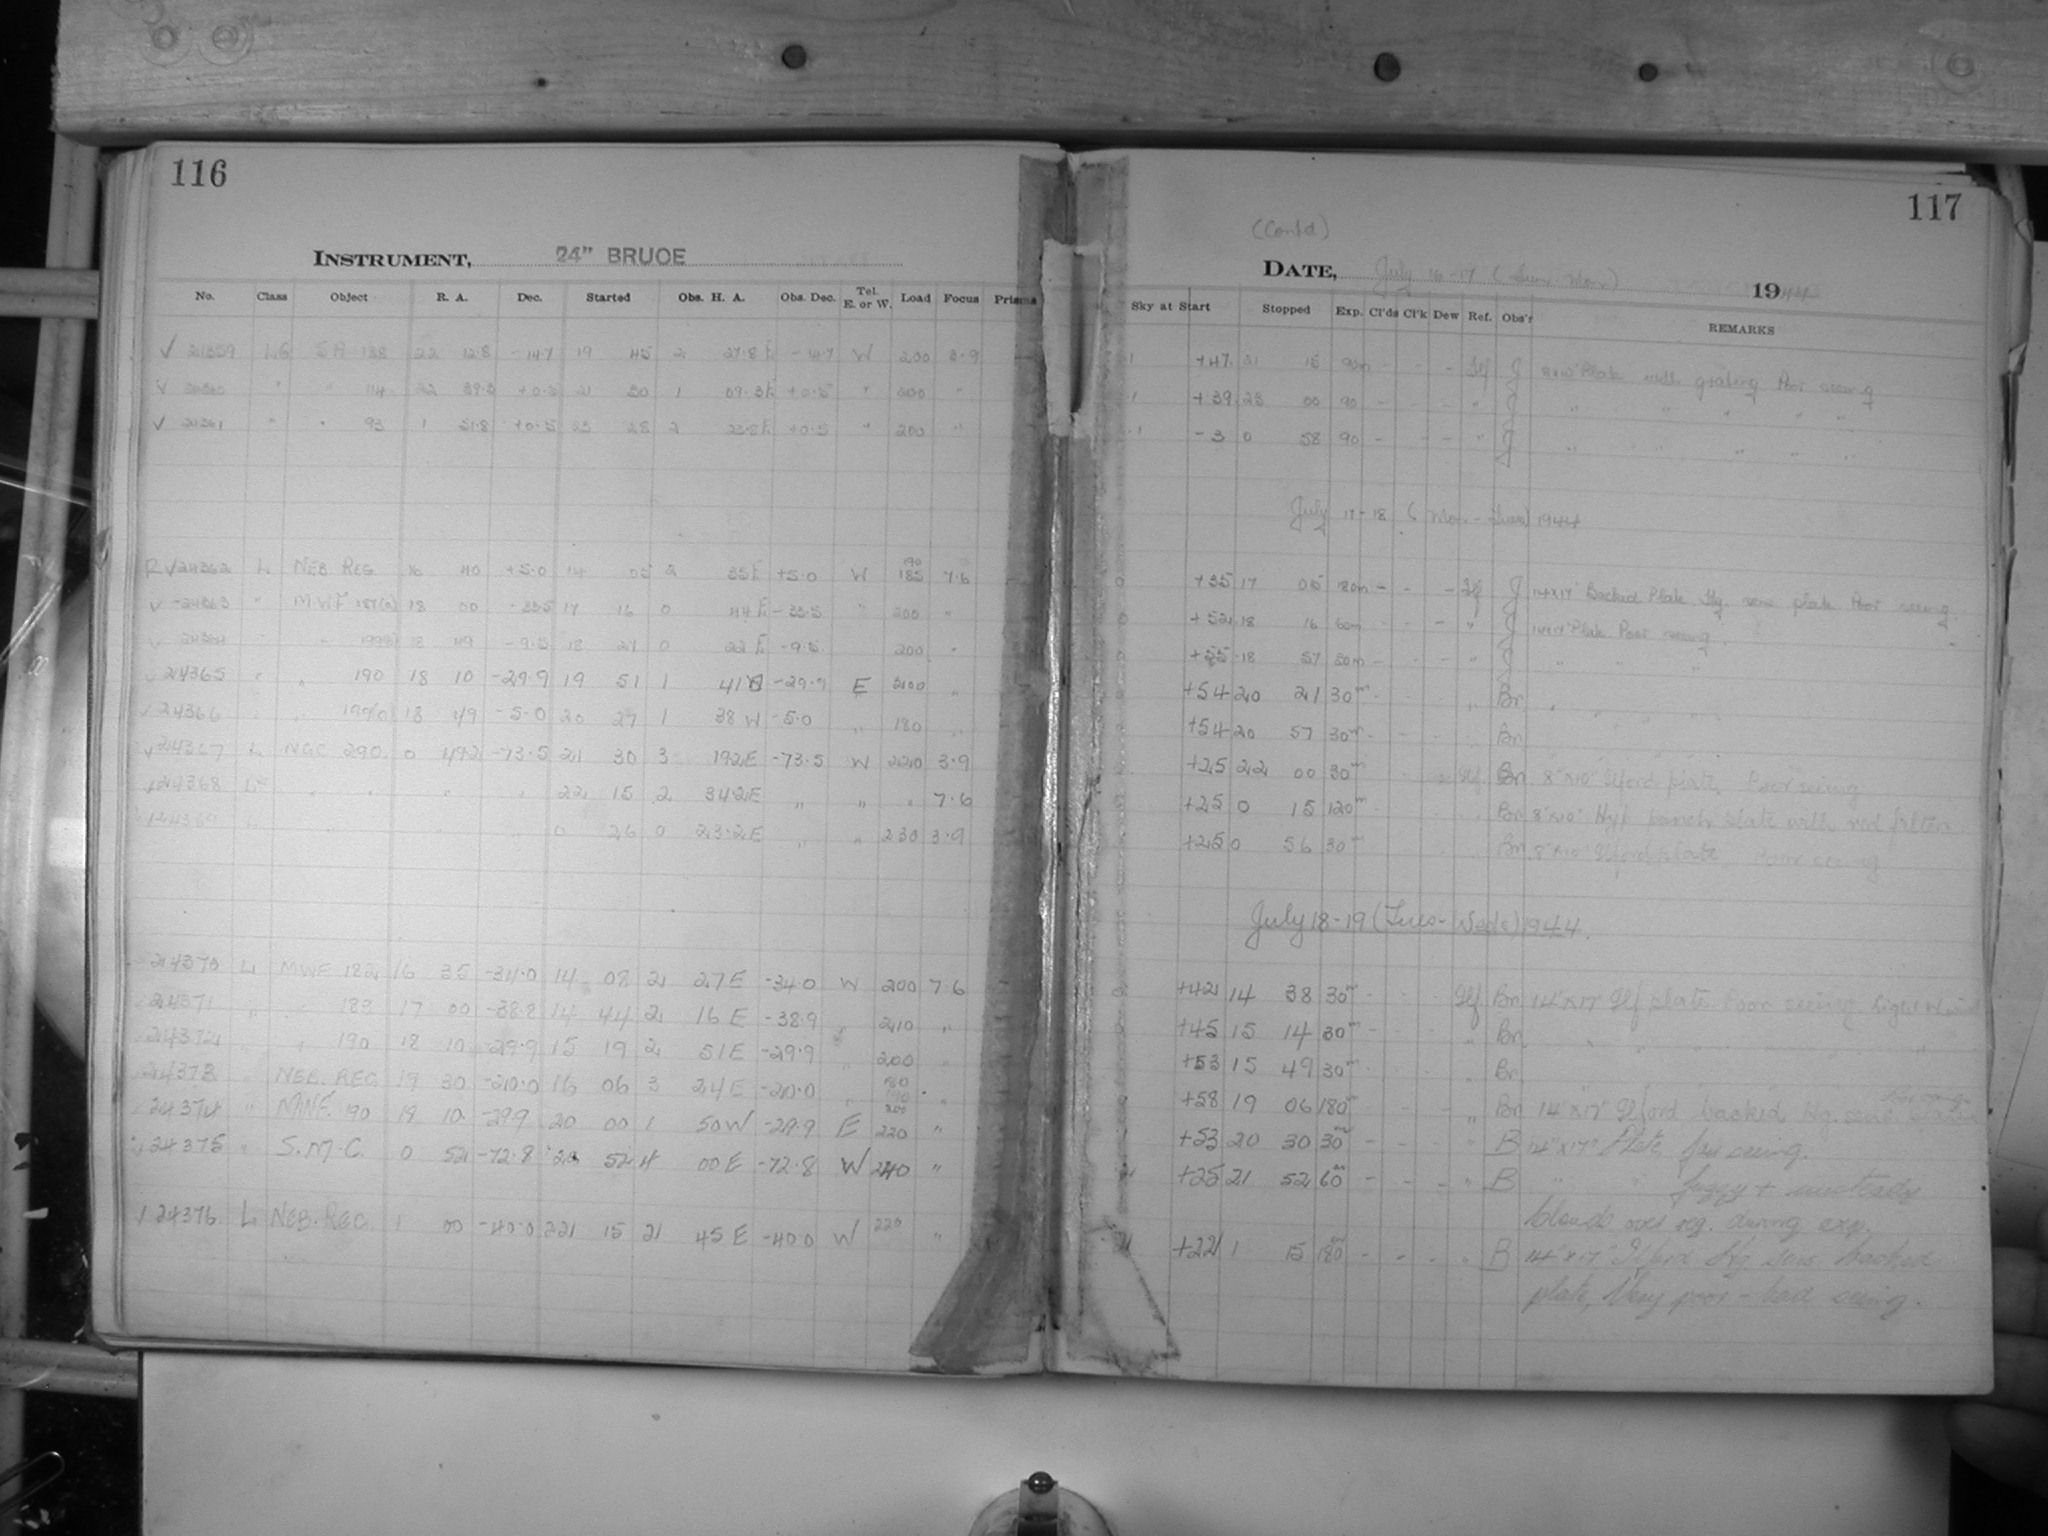 116
INSTRUMENT, 24" BRUCE
No. Class Object R. A. Dec. Started Obs. H. A. Obs. Dec. Tel. E. or W. Load Focus Prisms
√ 24359 LG SA 138 22 12.8 -14.7 19 45 2 27.8 E -14.7 W 200 3.9
√ 24360 " " 114 22 39.3 +0.5 21 30 1 09.3 E +0.5 " 200 "
√ 24361 " " 93 1 51.8 +0.5 23 28 2 23.8 E +0.5 " 200 "
R √ 24362 L NEB. REG. 16 40 +5.0 14 05 2 35 E +5.0 W 190 185 7.6
√ 24363 " M.W.F 187(a) 18 00 -33.5 17 16 0 44 E -33.5 " 200 "
√ 24364 " " 18 49 -9.5 18 27 0 22 E -9.5 200 "
√ 24365 " " 190 18 10 -29.9 19 51 1 41 W -29.9 E 200 "
√ 24366 " " 18 49 -5.0 20 27 1 38 W -5.0 " 180 "
√ 24367 L NGC 290 0 49.2 -73.5 21 30 3 19.2 E -73.5 W 220 3.9
√ 24368 " " " " 22 15 2 34.2 E " " " 7.6
24369 L " " " 0 26 0 23.2 E " " 230 3.9
24370 L MWF 182 16 35 -34.0 14 08 2 27 E -34.0 W 200 7.6 -
24371 " " 183 17 00 -38.8 14 44 2 16 E -38.9 " 210 "
24372 " " 190 18 10 -29.9 15 19 2 51 E -29.9 " 200 "
24373 " NEB. REG. 19 30 -20.0 16 06 3 24 E -20.0 " 180 190 200 "
24374 " MWF. 190 18 10 -29.9 20 00 1 50 W -29.9 E 220 "
24375 " S.M.C. 0 52 -72.8 20 52 4 00 E -72.8 W 240 "
√ 24376 L NEB. REG. 1 00 -40.0 22 15 2 45 E -40.0 W 220 "
117
(Contd)
DATE, July 16-17 (Sun-Mon) 1944
Sky at Start Stopped Exp. Cl'ds Cl'k Dew Ref. Obs'r REMARKS
1 +47 21 15 90m - - - Ilf J 8x10" Plate with grating Poor seeing
1 +39 23 00 90 - - - " J " " " " "
1 -3 0 58 90 - - - " J " " " " "
July 17-18 (Mon-Tues) 1944
0 +35 17 05 180m - - - Ilf J 14x17" Backed Plate Hg. sens plate Poor seeing
0 +52 18 16 60m - - - " J 14x17" Plate Poor seeing
0 +55 18 57 30m - - - " J " " "
+54 20 21 30m - " Br. " " " "
+54 20 57 30m - " Br.
+25 22 00 30m Ilf. Br. 8"x10" Ilford plate Poor seeing
+25 0 15 120m Br 8"x10" Hyp. panch. plate with red filter
+25 0 56 30m Br 8"x10" Ilford plate Poor seeing
July 18-19 (Tues-Weds) 1944.
+42 14 38 30m - - - Ilf. Br. 14"x17" Ilf plate Poor seeing Light N wind
+45 15 14 30m - - - " Br. " " " "
+53 15 49 30m - - - " Br
+58 19 06 180m - - - " Br 14"x17" Ilford backed Hg. sens plate
+53 20 30 30m - - - " B 14"x17" Plate, fair seeing.
+25 21 52 60m - - - " B " " fuzzy + unsteady
clouds over reg. during exp.
+22 1 15 180m - - - " B 14"x17" Ilford Hg. sens backed
plate, Very poor - bad seeing.